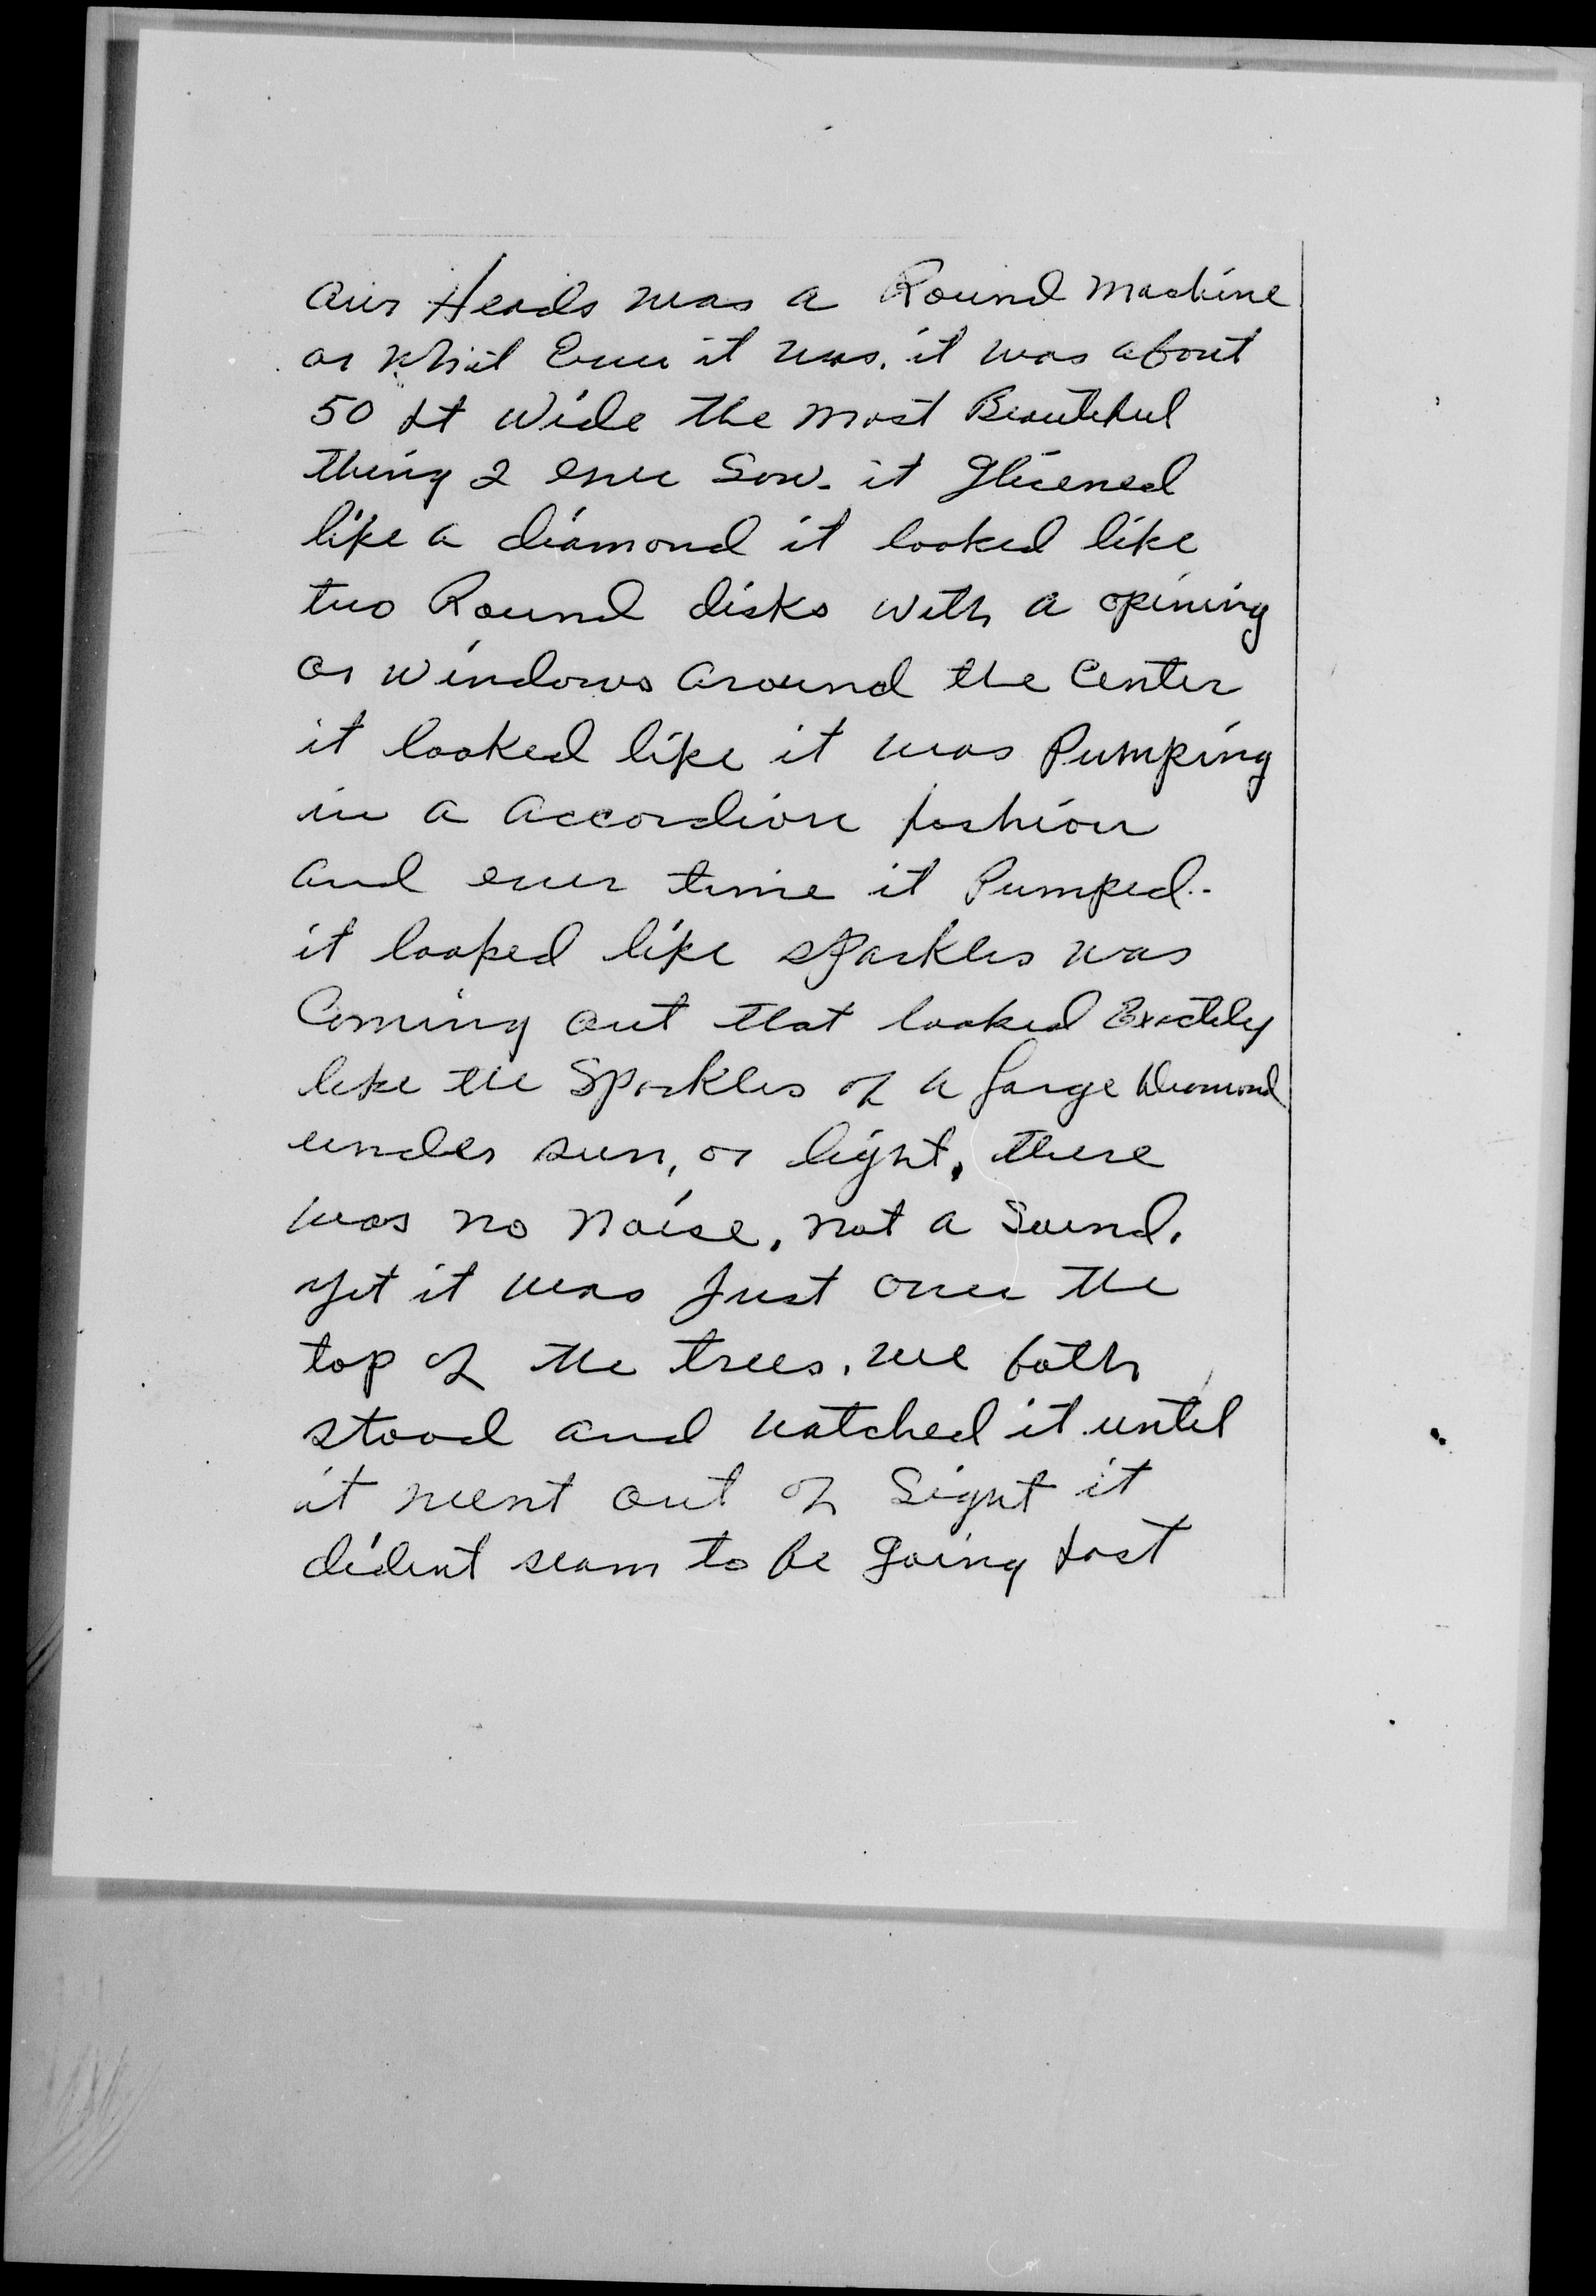 our Heads was a Round machine
or what Ever it was. it was about
50 ft wide the most Beauteful
thing I ever Saw. it glicened
like a diamond it looked like
two Round disks with a opining
or windows around the Center
it looked like it was Pumping
in a accordion fashion
and ever time it Pumped.
it looked like sparkles was
Coming out that looked Exactely
like the Sparkles of a large Diamond
under sun, or light, there
was no noise, not a Sound.
yet it was Just over the
top of the trees. we both
stood and watched it until
it went out of Sight it
dident seam to be going fast